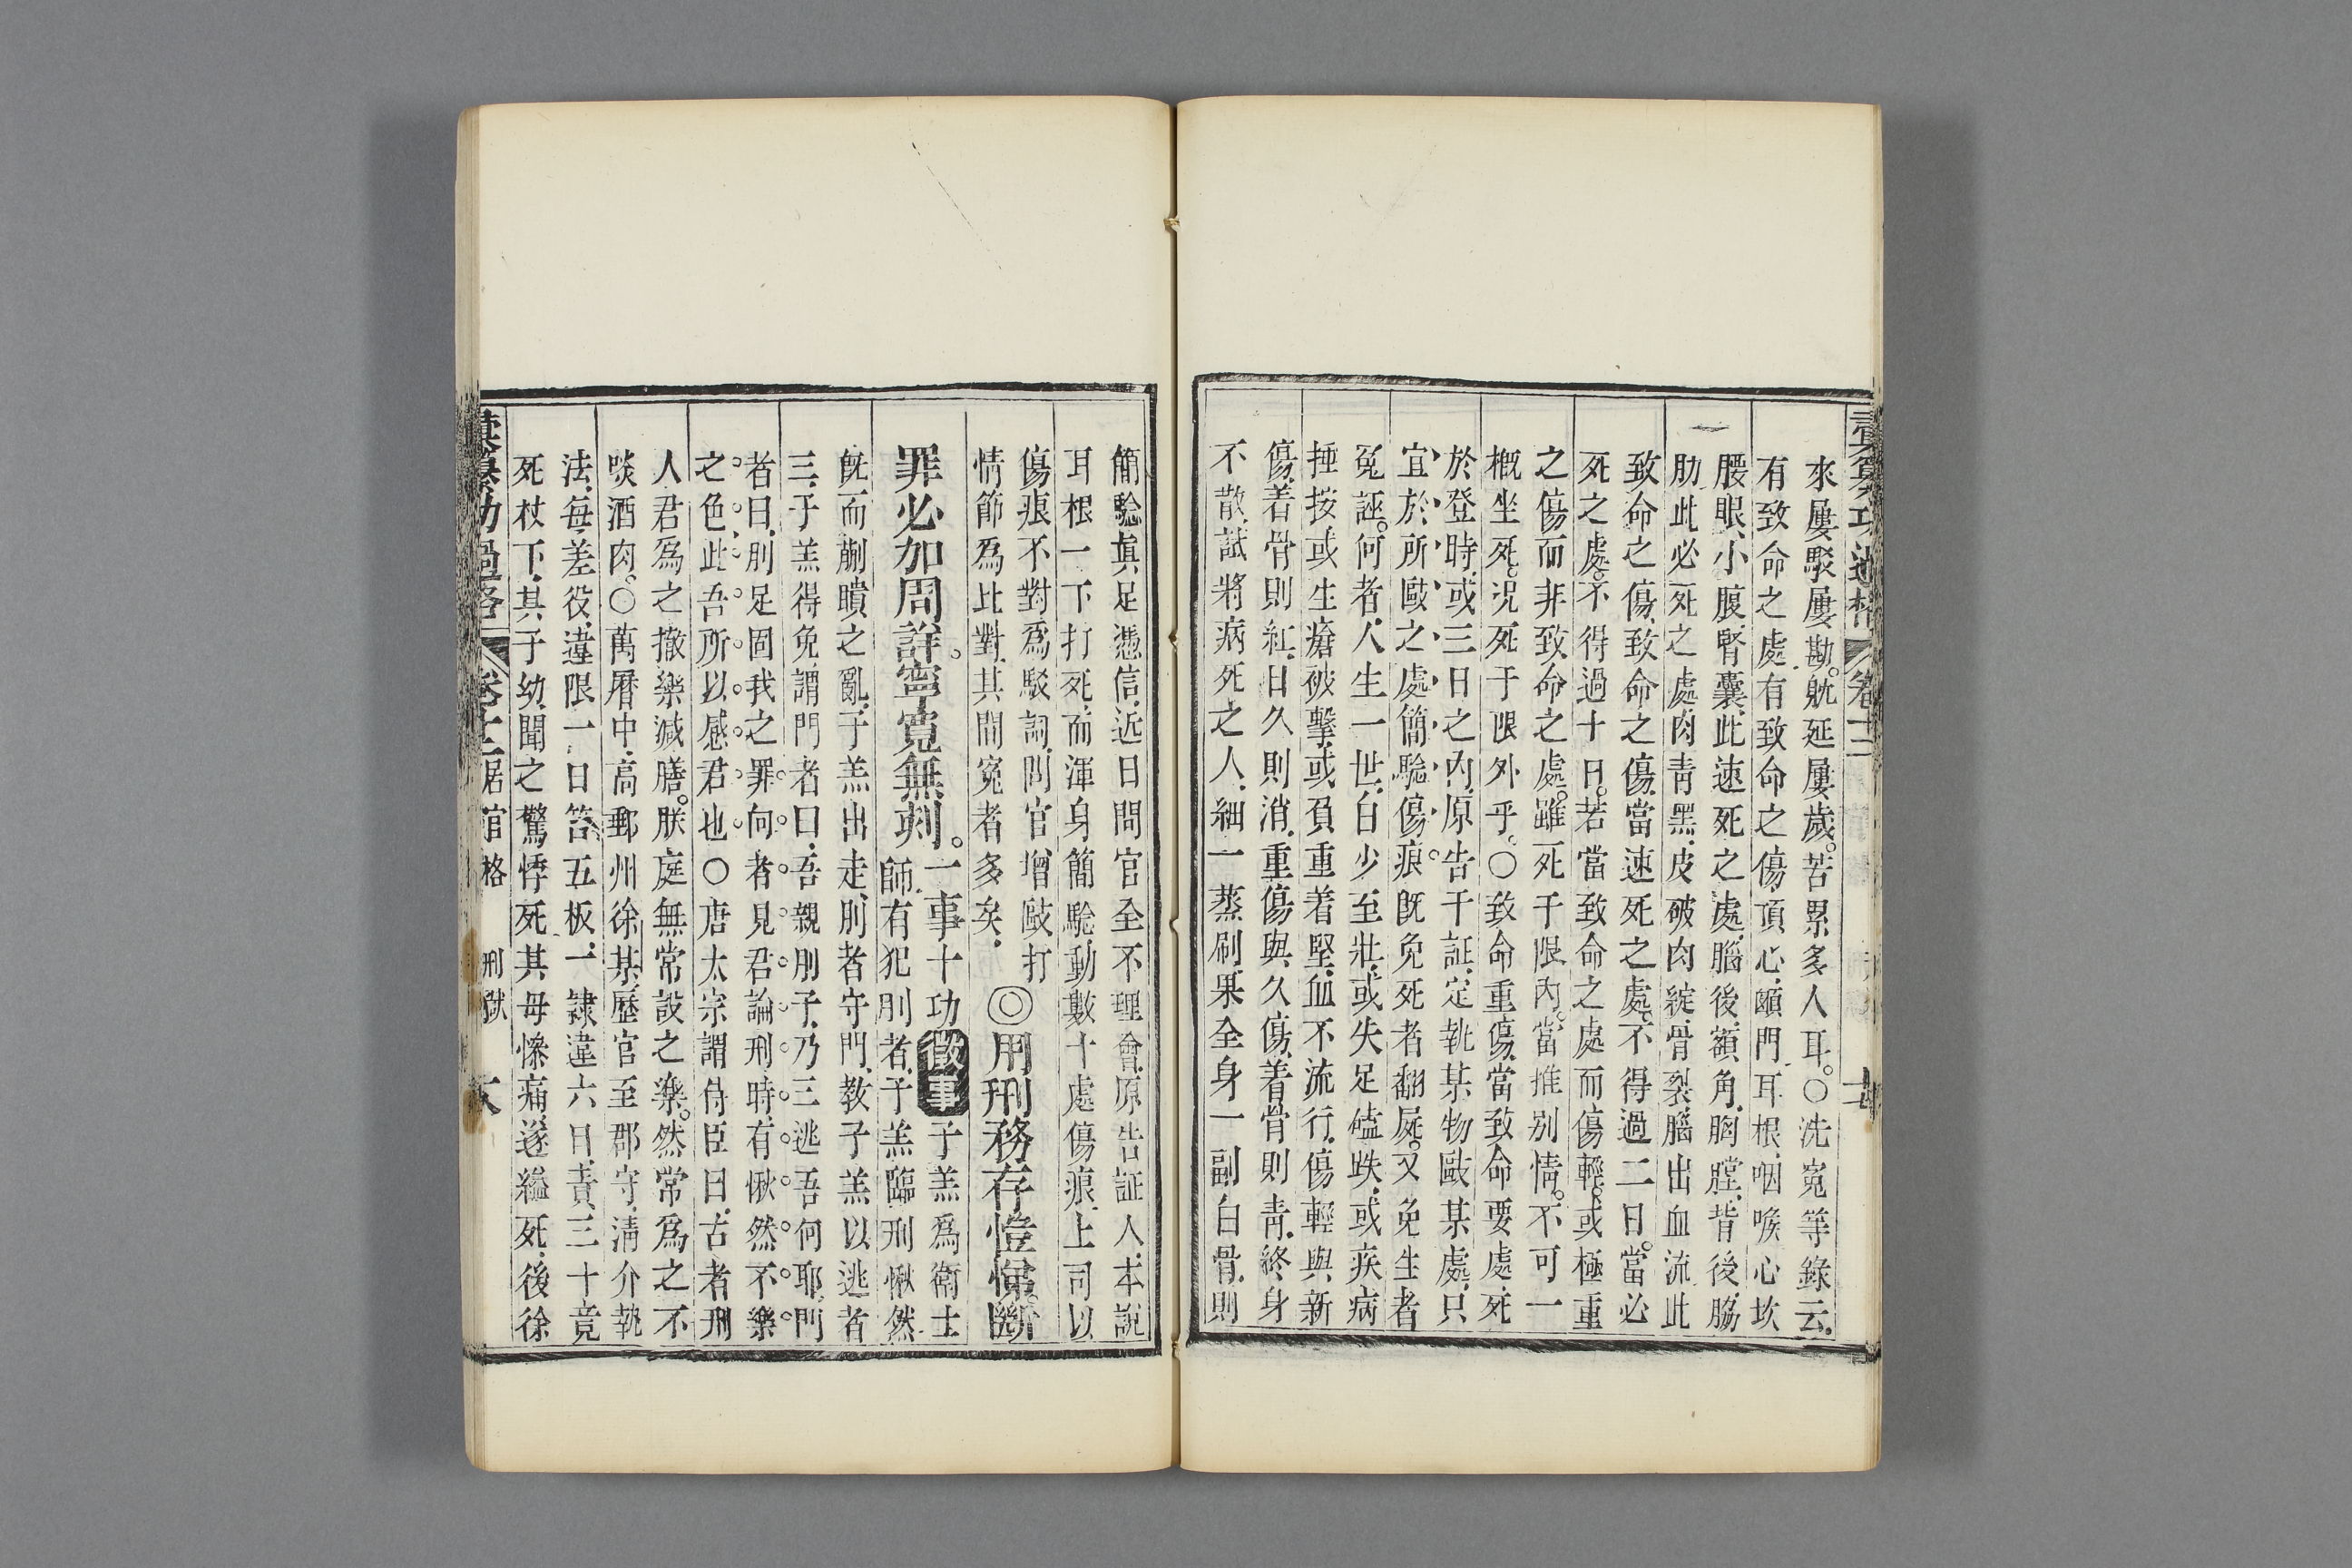 來屢駁屢勘。躭延屢歲。苦累多人耳。〇洗寃等錄云、
有致命之處、有致命之傷、頂心、顖門、耳根、咽喉、心坎
腰眼、小腹、腎囊、此速死之處、腦後、額角、胸膛、背後、脇
肋、此必死之處、肉青黑、皮破肉綻、骨裂、腦出血流、此
致命之傷、致命之傷、當速死之處、不得過二日。當必
死之處。不得過十日。若當致命之處而傷輕。或極重
之傷而非致命之處。雖死于限内。當推别情。不可一
概坐死。况死于限外乎。〇致命重傷、當致命要處、死
於登時、或三日之内、原告干証、定執某物毆某處、只
宜於所毆之處簡驗傷痕。既免死者翻屍。又免生者
寃誣。何者、人生一世、自少至壯、或失足磕跌、或疾病
捶按、或生瘡被擊、或負重着堅、血不流行、傷輕與新
傷、着骨則紅、日久則消、重傷與久傷、着骨則青、終身
不散、試將病死之人、細一蒸刷、果全身一副白骨、則
簡驗眞足憑信、近日問官全不理會、原告証人、本說
耳根一下打死、而渾身簡驗、動數十處傷痕、上司以
傷痕不對爲駁詞、問官增毆打
情節爲比對、其間寃者多矣、
◎用刑務存愷悌。斷
罪必加周詳。寧寛無刻。一事十功
徵事
子羔爲衛士
師、有犯刖者、子羔臨刑愀然
旣而蒯聵之亂、子羔出走、刖者守門、教子羔以逃者
三、子羔得免、謂門者曰、吾親刖子、乃三逃吾何耶。門
者曰、刖足固我之罪、向者見君論刑時、有愀然不樂
之色、此吾所以感君也〇唐太宗謂侍臣曰、古者刑
人、君爲之撤樂減膳。朕庭無常設之樂。然常爲之不
啖酒肉。〇萬曆中、高郵州徐某、歷官至郡守、淸介執
法、每差役、違限一日笞五板、一隸違六日、責三十竟
死杖下、其子幼、聞之驚悸死、其母慘痛、遂縊死、後徐
彙纂功過格
卷十二
居官格
刑獄